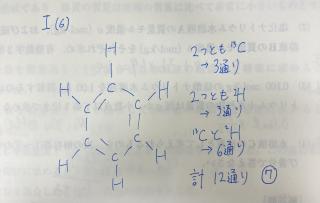 I(6)
2つとも ¹³C
→ 3通り
2つとも ²H
→ 3通り
¹³Cと²H
→ 6通り
計 12通り ⑦
H
C
H C C H
H C C H
C
H